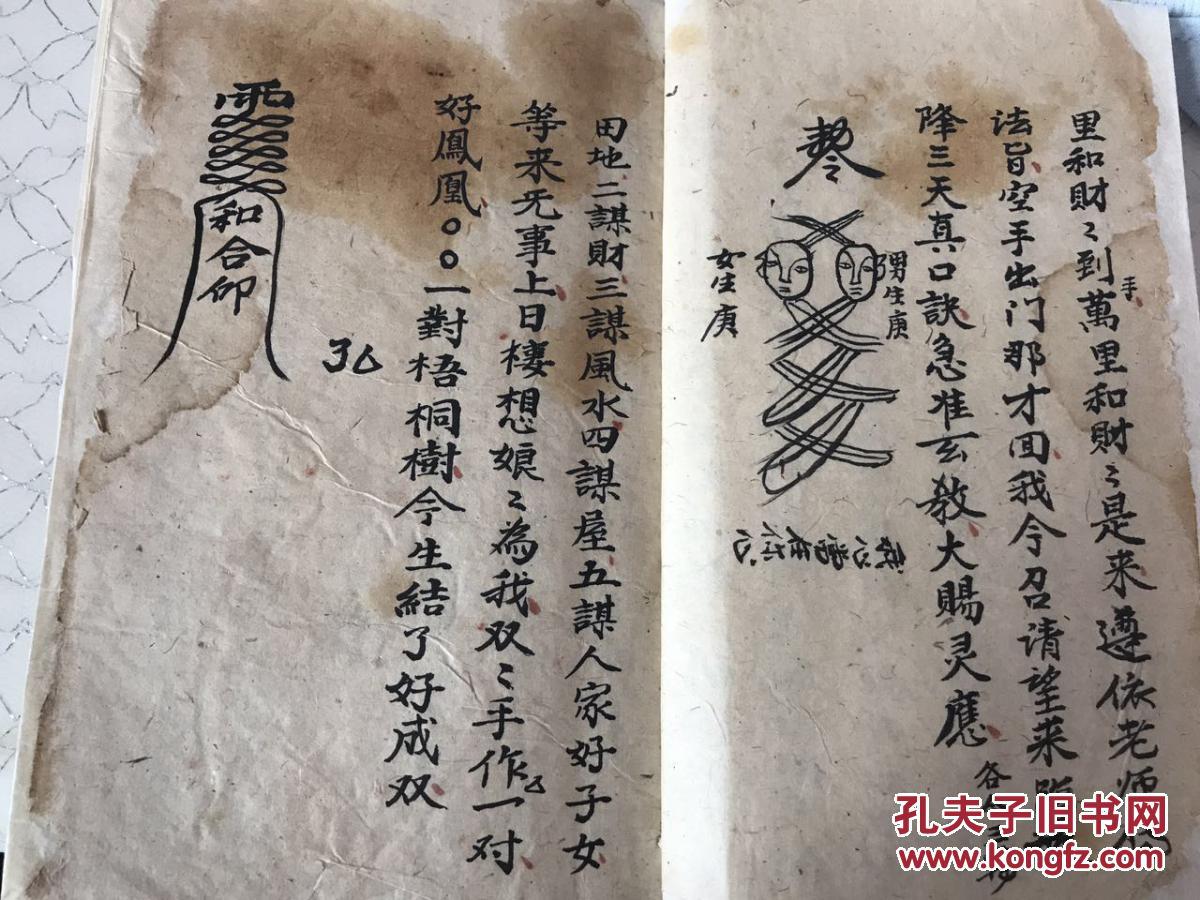 里和財〻到萬里和財〻是来遵依老师
手
法旨空手出门那才回我今召请望来
降三天真口訣急准玄教大賜灵應
男生庚
女生庚
田地二謀財三謀風水四謀屋五謀人家好子女
等来无事上日棲想娘〻為我双〻手作一对
好鳳凰〇〇一對梧桐樹今生結了好成双
和合仰
孔夫子旧书网
www.kongfz.com